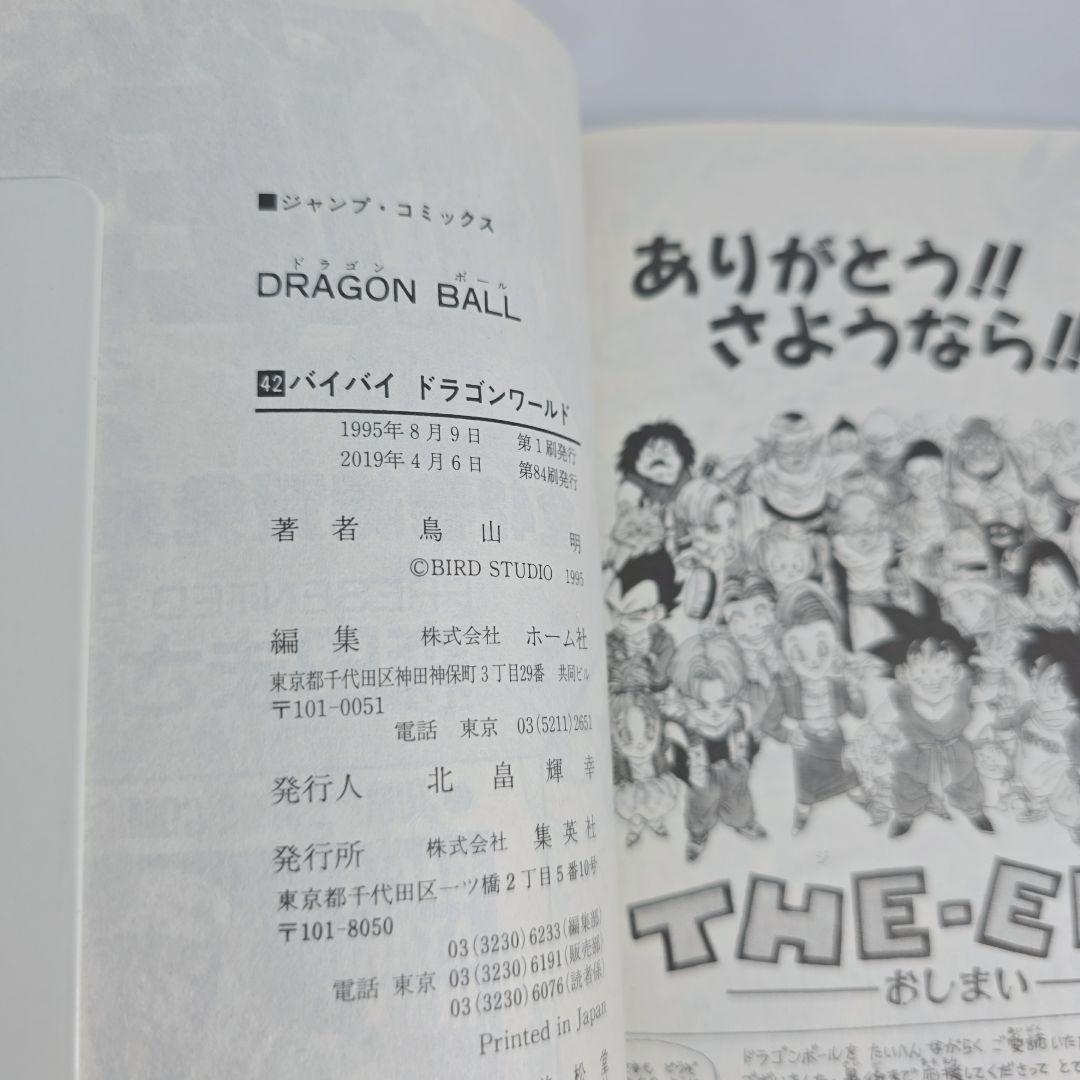 ■ジャンプ・コミックス
ドラゴン ボール
DRAGON BALL
42バイバイ ドラゴンワールド
1995年8月9日 第1刷発行
2019年4月6日 第84刷発行
著者 鳥山 明
©BIRD STUDIO 1995
編集 株式会社 ホーム社
東京都千代田区神田神保町3丁目29番 共同ビル
〒101-0051
電話 東京 03(5211)2651
発行人 北畠輝幸
発行所 株式会社 集英社
東京都千代田区一ツ橋2丁目5番10号
〒101-8050
03(3230)6233(編集部)
電話 東京 03(3230)6191(販売部)
03(3230)6076(読者係)
Printed in Japan
松堂
ありがとう!!
さようなら!!
THE-E
おしまい
ドラゴンボールを たいへん ながらく ご愛読 いた